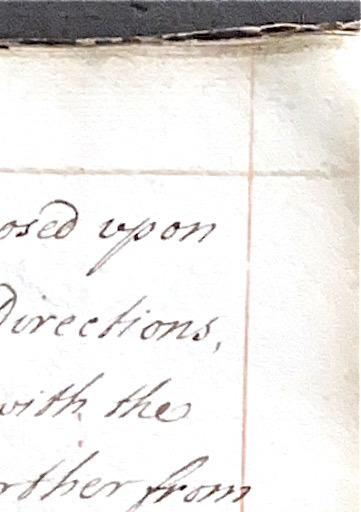 osed upon
Directions,
with the
rther from